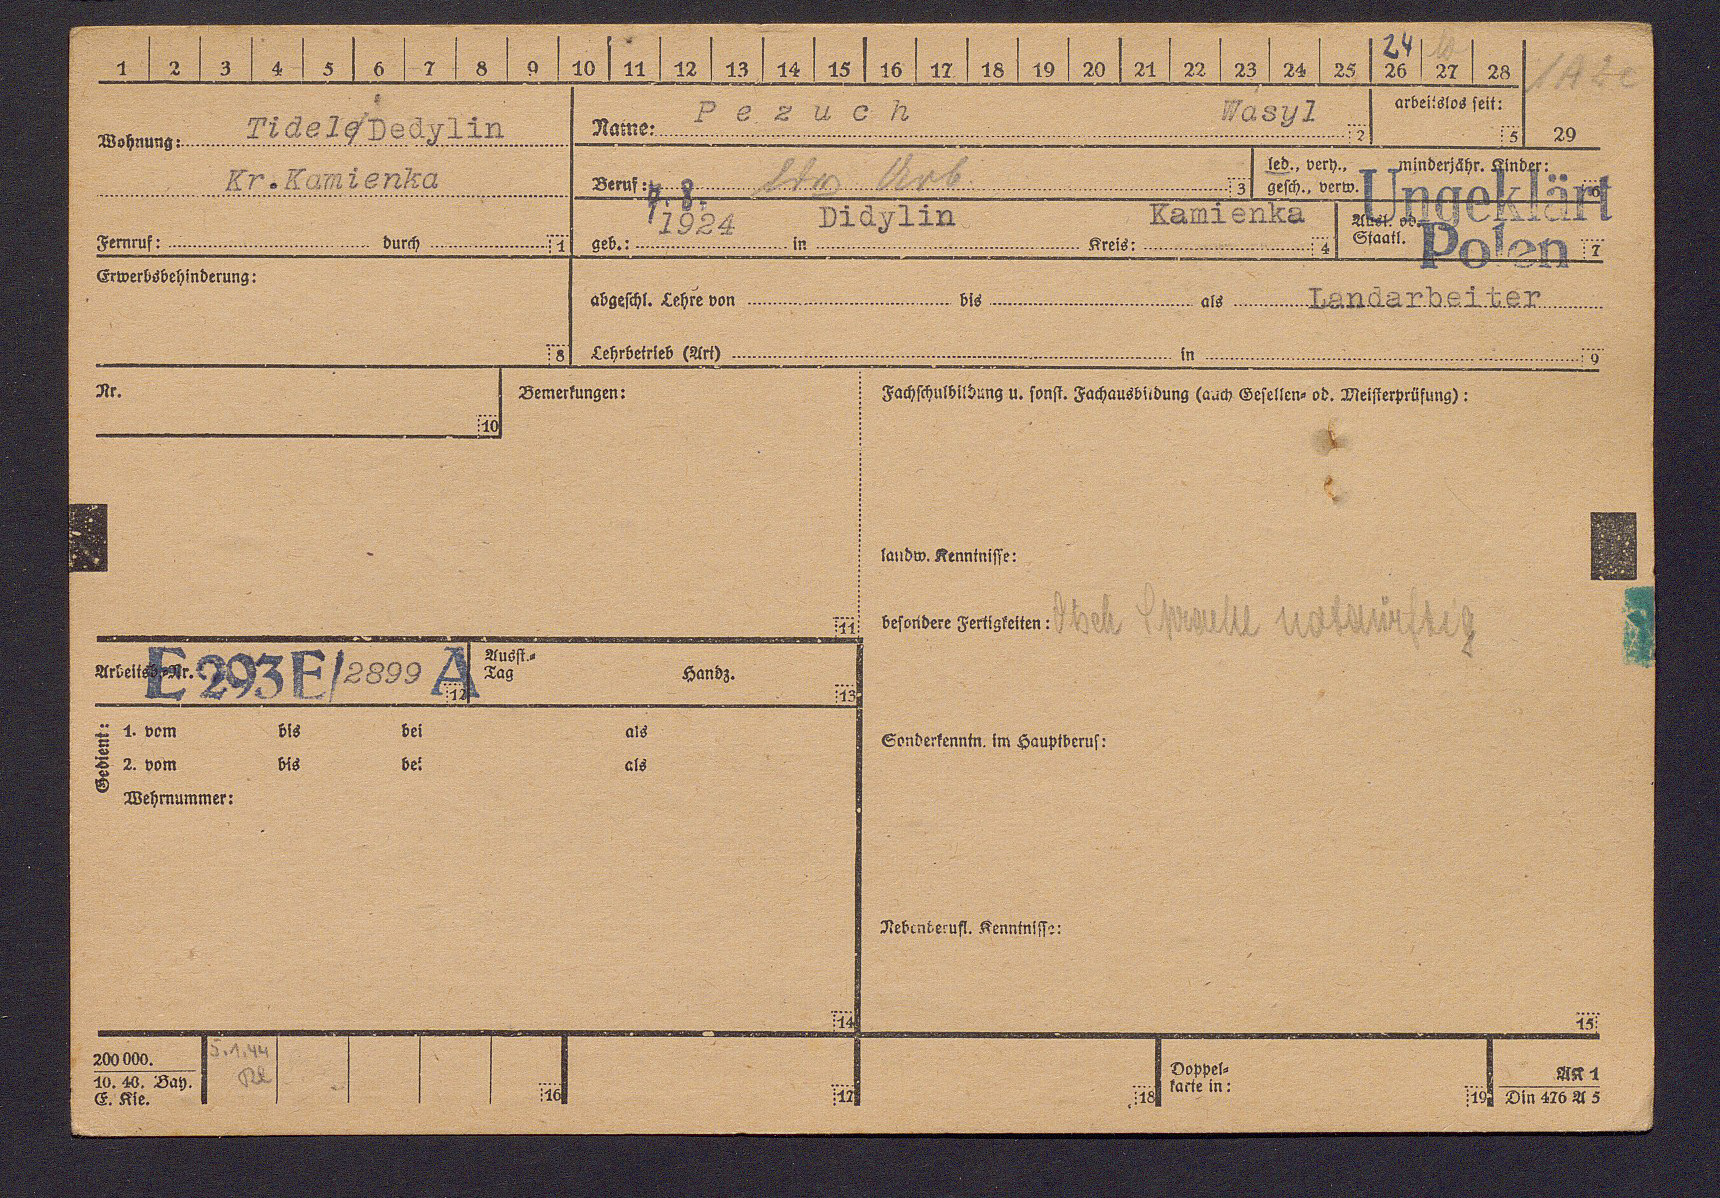 1 2 3 4 5 6 7 8 9 10 11 12 13 14 15 16 17 18 19 20 21 22 23 24 25 26 27 28
24
Wohnung: Tidele/Dedylin
Kr. Kamienka
Fernruf: durch 1
Name: Pezuch Wasyl 2
arbeitslos seit: 5
29
Beruf: ldw Arb. 3
led., verh., gesch., verw.
minderjähr. Kinder: 6
geb.: 4.8. 1924 in Didylin Kreis: Kamienka 4
Ausl. od. Staatl. 7
Ungeklärt
Polen
Erwerbsbehinderung: 8
abgeschl. Lehre von bis als Landarbeiter
Lehrbetrieb (Art) in 9
Nr. 10
Bemerkungen: 11
Fachschulbildung u. sonst. Fachausbildung (auch Gesellen= od. Meisterprüfung):
landw. Kenntnisse:
besondere Fertigkeiten: Dtsch Sprache notdürftig
Sonderkenntn. im Hauptberuf:
Nebenberufl. Kenntnisse:
15
Arbeitsb.=Nr. E 293 E/2899 A 12
Ausst.=
Tag Handz. 13
Gedient:
1. vom bis bei als
2. vom bis bei als
Wehrnummer:
14
200 000.
10. 40. Bay.
E. Kie.
5.1.44
16
17
18
Doppel=
karte in: 19
AK 1
Din 476 A 5